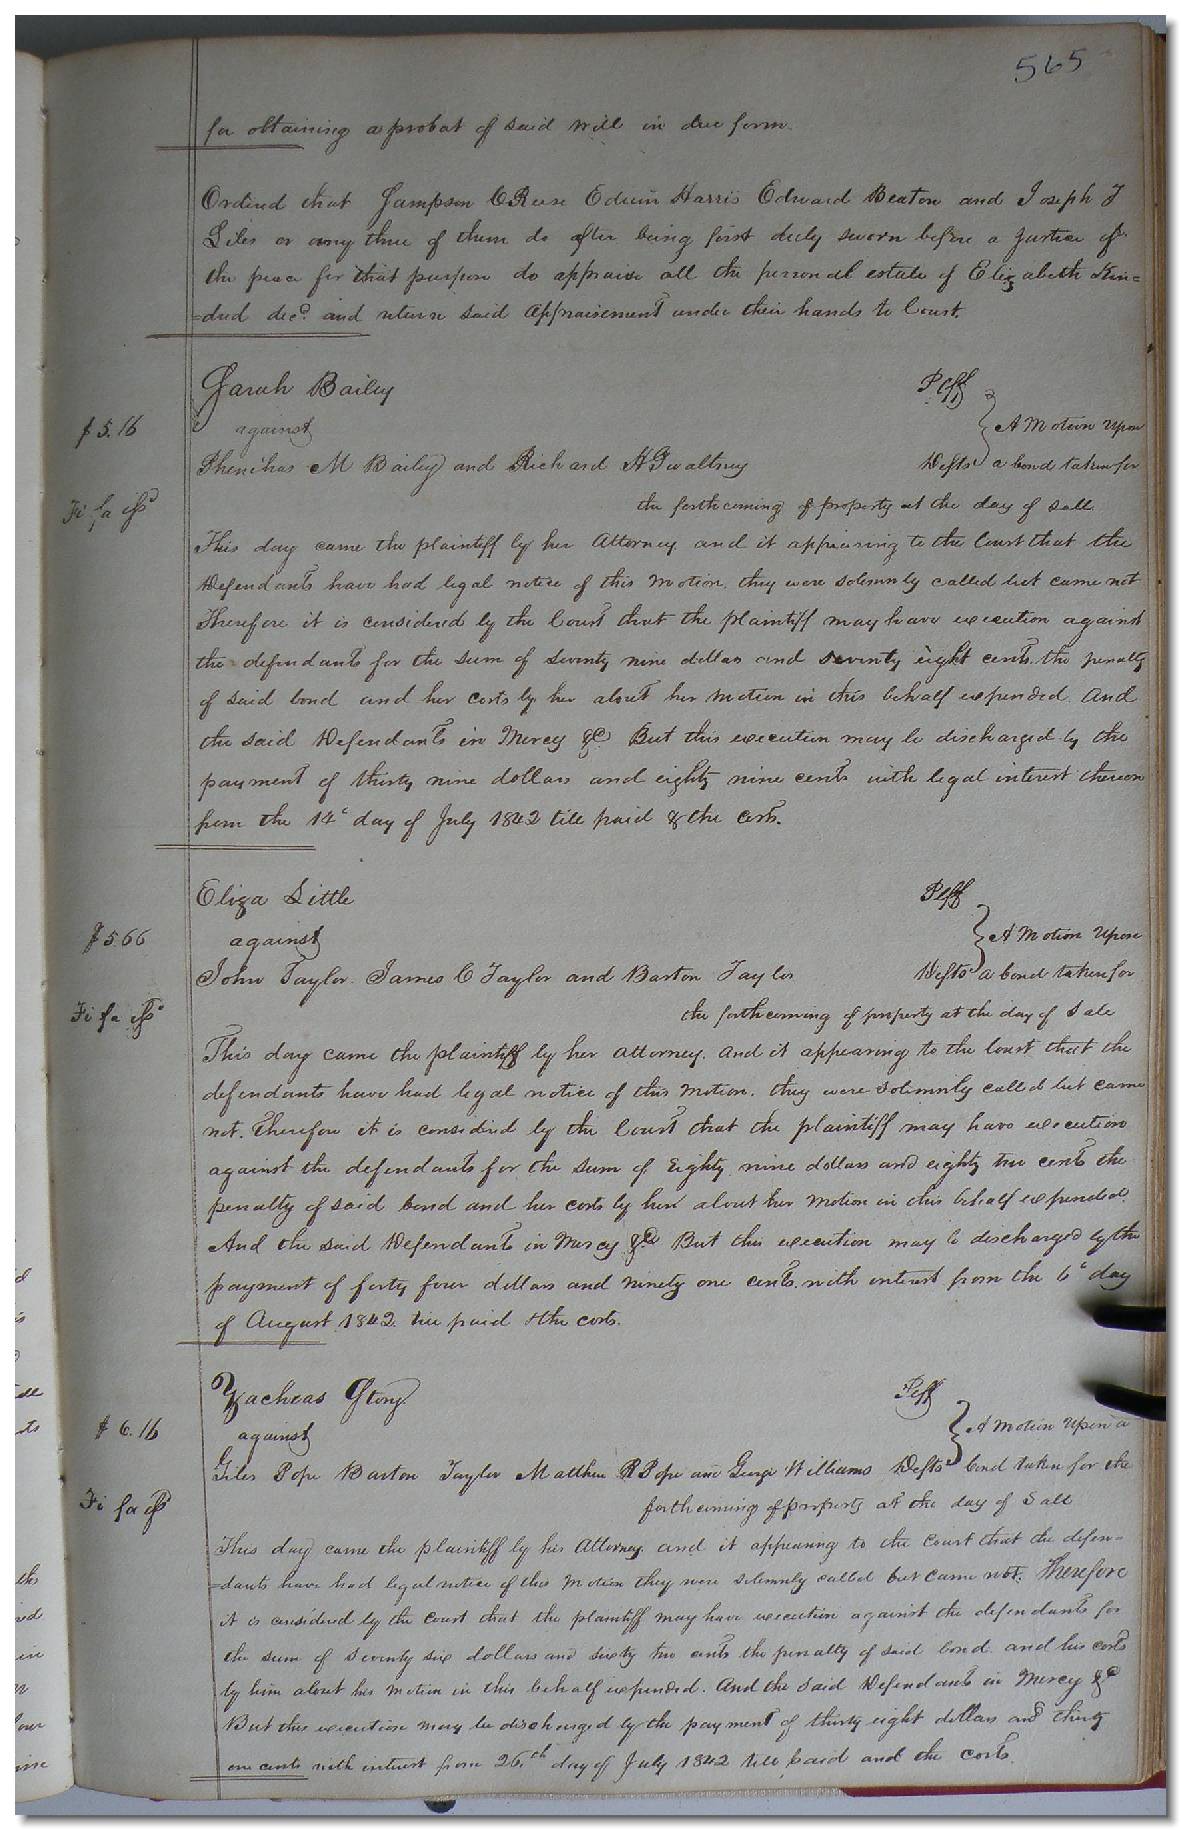 565
for obtaining a probat of said will in due form.
Ordered that Sampson C Reese Edwin Harris Edward Beaton and Joseph J
Giles or any three of them do after being first duly sworn before a Justice of
the peace for that purpose do appraise all the personal estate of Elizabeth Kin=
=dred decd. and return said Appraisement under their hands to Court.
Sarah Bailey Plff
$5.16 against } A Motion Upon
M Bailey and Richard H Gwaltney Defts a bond taken for
Fi fa issd the forthcoming of property at the day of sale
This day came the plaintiff by her Attorney and it appearing to the Court that the
Defendants have had legal notice of this Motion. they were solemnly called but came not
Therefore it is considered by the Court that the plaintiff may have execution against
the defendants for the sum of seventy nine dollars and seventy eight cents. the penalty
of said bond and her costs by her about her motion in this behalf expended. And
the said Defendants in Mercy &c But this execution may be discharged by the
payment of thirty nine dollars and eighty nine cents with legal interest thereon
from the 14th day of July 1842 till paid & the costs.
Eliza Little Plff
$5.66 against } A Motion Upon
John Taylor James C Taylor and Barton Taylor Defts a bond taken for
Fi fa issd the forthcoming of property at the day of Sale
This day came the plaintiff by her attorney. and it appearing to the Court that the
defendants have had legal notice of this Motion. they were solemnly called but came
not. Therefore it is considered by the Court that the plaintiff may have execution
against the defendants for the sum of Eighty nine dollars and eighty two cents the
penalty of said bond and her costs by her about her motion in this behalf expended.
And the said Defendants in Mercy &c But this execution may be discharged by the
payment of forty four dollars and ninety one cents. with interest from the 6th day
of August 1842. till paid & the costs.
Zacheas Story Plff
$6.16 against } A Motion Upon a
Giles Pope Barton Taylor Matthew R Pope and George Williams Defts bond taken for the
Fi fa issd forthcoming of property at the day of Sale
This day came the plaintiff by his Attorney and it appearing to the Court that the defen=
=dants have had legal notice of this Motion they were solemnly called but came not. Therefore
it is considered by the Court that the plaintiff may have execution against the defendants for
the sum of seventy six dollars and sixty two cents the penalty of said bond. and his costs
by him about his motion in this behalf expended. And the said Defendants in Mercy &c
But this execution may be discharged by the payment of thirty eight dollars and thirty
one cents with interest from 26th day of July 1842 till paid and the costs.